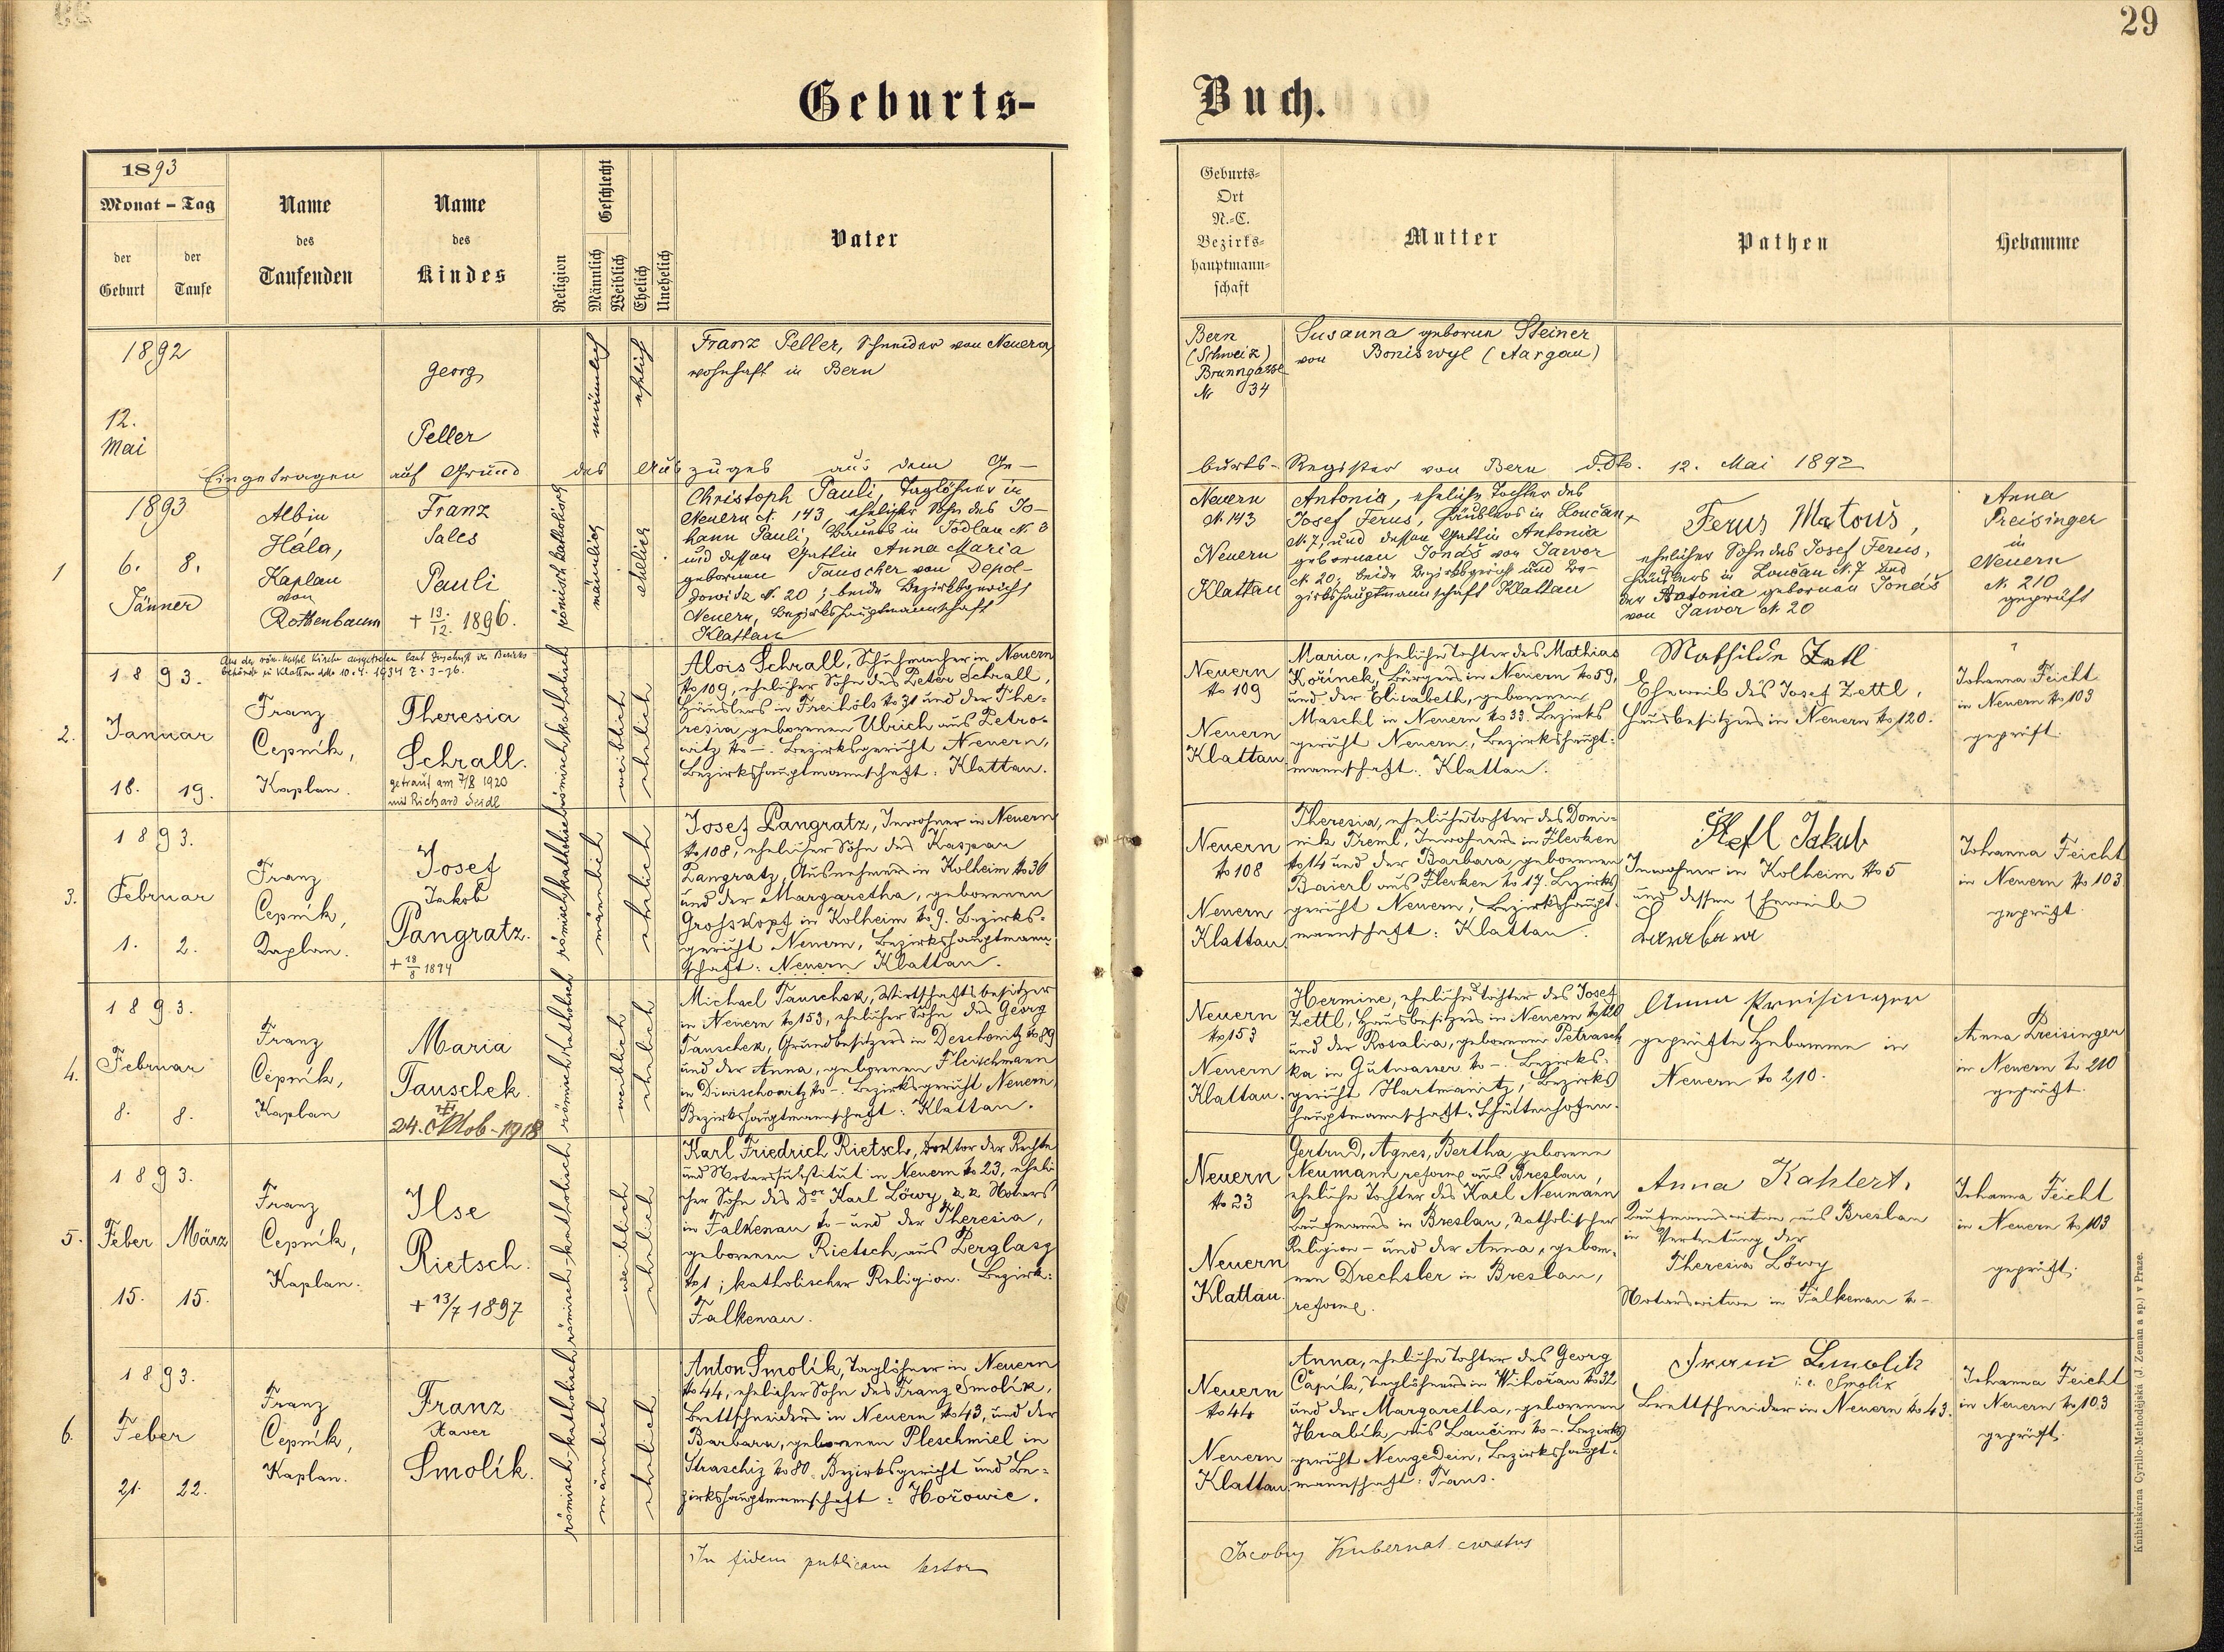 29
Geburts-
Buch.
1893
Monat - Tag
der Geburt
der Taufe
Name des Taufenden
Name des Kindes
Religion
Geschlecht
Männlich
Weiblich
Ehelich
Unehelich
Vater
Geburts-
Ort
N.-C.
Bezirks-
hauptmann-
schaft
Mutter
Pathen
Hebamme
1892
12.
Mai
Georg
Peller
männlich
ehelich
Franz Peller, Schneider von Neuern,
wohnhaft in Bern
Bern
(Schweiz)
Brunngasse
Nr 34
Susanna geborene Steiner
von Boniswyl (Aargau)
Eingetragen auf Grund des Auszuges aus dem Ge-
burts-Register von Bern d.dto. 12. Mai 1892
1
1893
6. 8.
Jänner
Albin
Hála,
Kaplan
von
Rothenbaum
Franz
Sales
Pauli
+ 19./12. 1896.
römisch katholisch
männlich
ehelich
Christoph Pauli, Taglöhner in
Neuern N. 143, ehelicher Sohn des Jo-
hann Pauli, Bauers in Todlau N. 3
und dessen Gattin Anna Maria
gebornen Tauscher von Depol-
dowitz N. 20; beide Bezirksgericht
Neuern, Bezirkshauptmannschaft
Klattau
Neuern
N. 143
Neuern
Klattau
Antonia, eheliche Tochter des
Josef Ferus, Häuslers in Loučan
N. 7, und dessen Gattin Antonia
gebornen Jonáš von Jawor
N. 20; beide Bezirksgericht und Be-
zirkshauptmannschaft Klattau
Ferus Matouš,
ehelicher Sohn des Josef Ferus,
Häuslers in Loučan N. 7 und
der Antonia gebornen Jonáš
von Jawor N. 20
Anna
Preisinger
in
Neuern
N. 210
geprüft
Aus der röm.-kathol. Kirche ausgetreten laut Zuschrift der Bezirks-
behörde in Klattau ddto 10.4. 1934 Z. 3-76.
2.
1893.
Januar
18. 19.
Franz
Čepnik,
Kaplan.
Theresia
Schrall.
getraut am 7/8 1920
mit Richard Seidl
römisch-katholisch
weiblich
ehelich
Alois Schrall, Schuhmacher in Neuern
No 109, ehelicher Sohn des Peter Schrall,
Häuslers in Freihöls No 31 und der The-
resia, gebornen Ulrich aus Petro-
witz No –. Bezirksgericht Neuern,
Bezirkshauptmannschaft: Klattau.
Neuern
No 109
Neuern
Klattau
Maria, eheliche Tochter des Mathias
Kořinek, Bürgers in Neuern No 59,
und der Elisabeth, gebornenen
Maschl in Neuern No 33. Bezirks
gericht Neuern, Bezirkshaupt-
mannschaft: Klattau.
Mathilde Zettl
Eheweib des Josef Zettl,
Hausbesitzers in Neuern No 120.
Johanna Feicht
in Neuern No 103
geprüft.
3.
1893.
Februar
1. 2.
Franz
Čepnik,
Kaplan.
Josef
Jakob
Pangratz.
+ 18/8 1894
römisch katholisch
männlich
ehelich
Josef Pangratz, Inwohner in Neuern
No 108, ehelicher Sohn des Kaspar
Pangratz, Ausnehmers in Kolheim No 36
und der Margaretha, gebornenen
Grosskopf in Kolheim No 9. Bezirks-
gericht Neuern, Bezirkshauptmann-
schaft: Neuern Klattau.
Neuern
No 108
Neuern
Klattau
Theresia, eheliche Tochter des Domi-
nik Treml, Inwohners in Flecken
No 14 und der Barbara, gebornenen
Baierl aus Flecken No 17. Bezirks
gericht Neuern, Bezirkshaupt-
mannschaft: Klattau.
Jakub
Inwohner in Kolheim No 5
und dessen Eheweib
Barbara
Johanna Feicht
in Neuern No 103
geprüft.
4.
1893.
Februar
8. 8.
Franz
Čepnik,
Kaplan
Maria
Tauschek.
24. Oktob-1918
römisch katholisch
weiblich
ehelich
Michael Tauschek, Wirtschaftsbesitzer
in Neuern No 153, ehelicher Sohn des Georg
Tauschek, Grundbesitzers in Deschenitz No 89
und der Anna, gebornenen Fleischmann
in Diwischowitz No –. Bezirksgericht Neuern,
Bezirkshauptmannschaft: Klattau.
Neuern
No 153
Neuern
Klattau.
Hermine, eheliche Tochter des Josef
Zettl, Hausbesitzers in Neuern No 120
und der Rosalia, gebornenen Petrasch
ka in Gutwasser No –. Bezirks-
gericht Hartmanitz, Bezirks
hauptmannschaft: Schüttenhofen.
Anna Preisinger
geprüfte Hebamme in
Neuern No 210.
Anna Preisinger
in Neuern No 210
geprüft.
5.
1893.
Feber März
15. 15.
Franz
Čepnik,
Kaplan.
Ilse
Rietsch.
+ 13/7 1897
römisch-katholisch
weiblich
ehelich
Karl Friedrich Rietsch, Doktor der Rechte
und Notarssubstitut in Neuern No 23, eheli-
cher Sohn des Dor Karl Löwy, k.k. Notars
in Falkenau No – und der Theresia,
gebornenen Rietsch aus Perglasz
No 1; katholischer Religion. Bezirk:
Falkenau.
Neuern
No 23
Neuern
Klattau.
Gertrud, Agnes, Bertha geborene
Neumann reform. aus Breslau,
eheliche Tochter des Karl Neumann
Kaufmanns in Breslau, katholischer
Religion – und der Anna, gebor-
nen Drechsler in Breslau,
reform.
Anna Kahlert,
Kaufmannswitwe aus Breslau
in Vertretung der
Theresia Löwy
Notarswitwe in Falkenau No –
Johanna Feicht
in Neuern No 103
geprüft.
6.
1893.
Feber
21. 22.
Franz
Čepnik,
Kaplan.
Franz
Xaver
Smolík.
römisch-katholisch
männlich
ehelich
Anton Smolík, Taglöhner in Neuern
No 44, ehelicher Sohn des Franz Smolík,
Brettschneiders in Neuern No 43, und der
Barbara, gebornenen Pleschmiel in
Straschiz No 80. Bezirksgericht und Be-
zirkshauptmannschaft: Hořowic.
Neuern
No 44
Neuern
Klattau
Anna, eheliche Tochter des Georg
Čapík, Taglöhners in Wihořau No 32
und der Margaretha, gebornenen
Hralík aus Laučim No –. Bezirks
gericht Neugedein, Bezirkshaupt-
mannschaft: Taus.
Smolik
i. e. Smolík
Brettschneider in Neuern No 43.
Johanna Feicht
in Neuern No 103
geprüft.
In fidem publicam testor
Jacobus Kubernat curatus
Knihtiskárna Cyrillo-Methodějská (J. Zeman a sp.) v Praze.